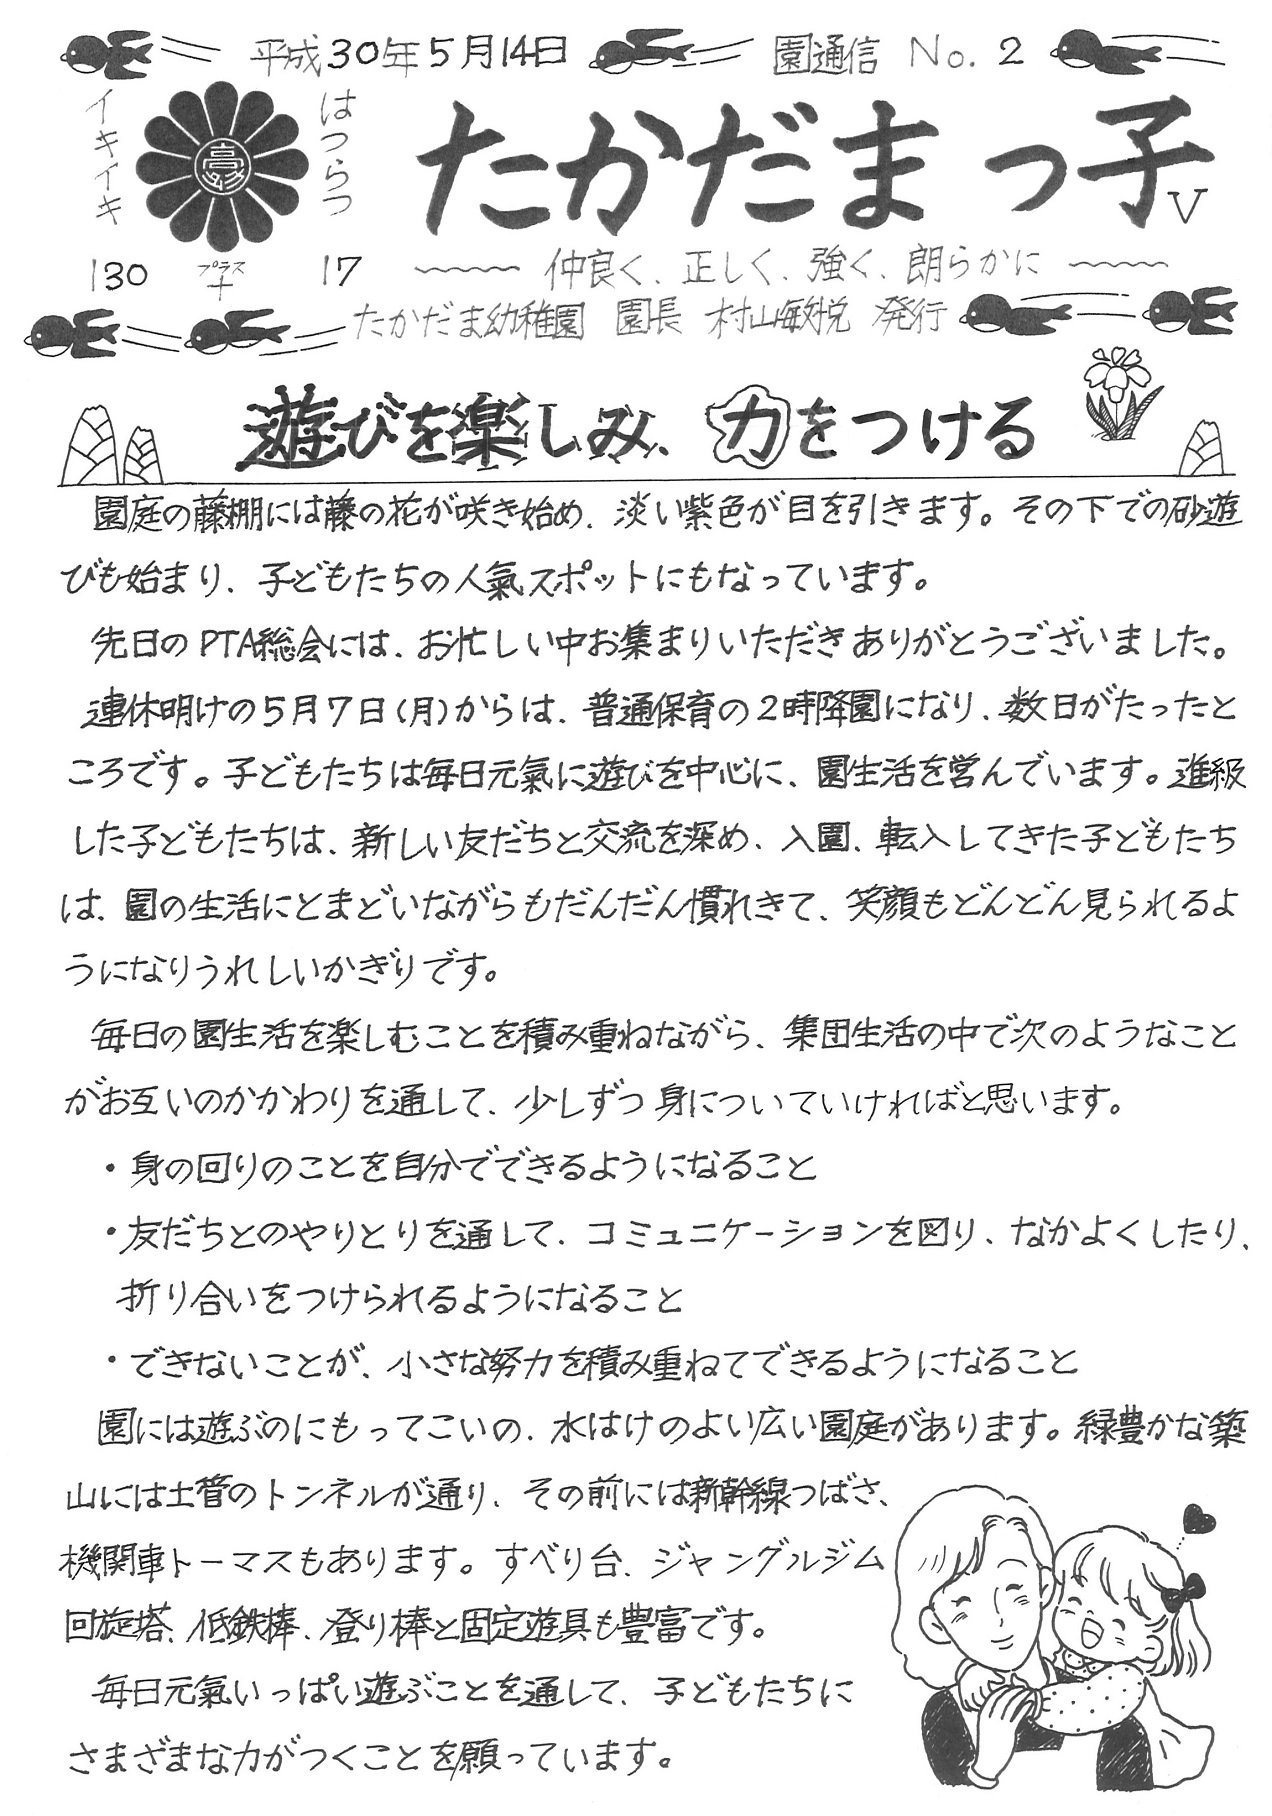 平成30年5月14日 園通信 No.2
イキイキ はつらつ
たかだまっ子 V
130 プラス+ 17
仲良く、正しく、強く、朗らかに
たかだま幼稚園 園長 村山敏悦 発行
遊びを楽しみ、力をつける
園庭の藤棚には藤の花が咲き始め、淡い紫色が目を引きます。その下での砂遊
びも始まり、子どもたちの人氣スポットにもなっています。
先日のPTA総会には、お忙しい中お集まりいただきありがとうございました。
連休明けの5月7日(月)からは、普通保育の2時降園になり、数日がたったと
ころです。子どもたちは毎日元氣に遊びを中心に、園生活を営んでいます。進級
した子どもたちは、新しい友だちと交流を深め、入園、転入してきた子どもたち
は、園の生活にとまどいながらもだんだん慣れきて、笑顔もどんどん見られるよ
うになりうれしいかぎりです。
毎日の園生活を楽しむことを積み重ねながら、集団生活の中で次のようなこと
がお互いのかかわりを通して、少しずつ身についていければと思います。
・身の回りのことを自分でできるようになること
・友だちとのやりとりを通して、コミュニケーションを図り、なかよくしたり、
折り合いをつけられるようになること
・できないことが、小さな努力を積み重ねてできるようになること
園には遊ぶのにもってこいの、水はけのよい広い園庭があります。緑豊かな築
山には土管のトンネルが通り、その前には新幹線つばさ、
機関車トーマスもあります。すべり台、ジャングルジム
回旋塔、低鉄棒、登り棒と固定遊具も豊富です。
毎日元氣いっぱい遊ぶことを通して、子どもたちに
さまざまな力がつくことを願っています。